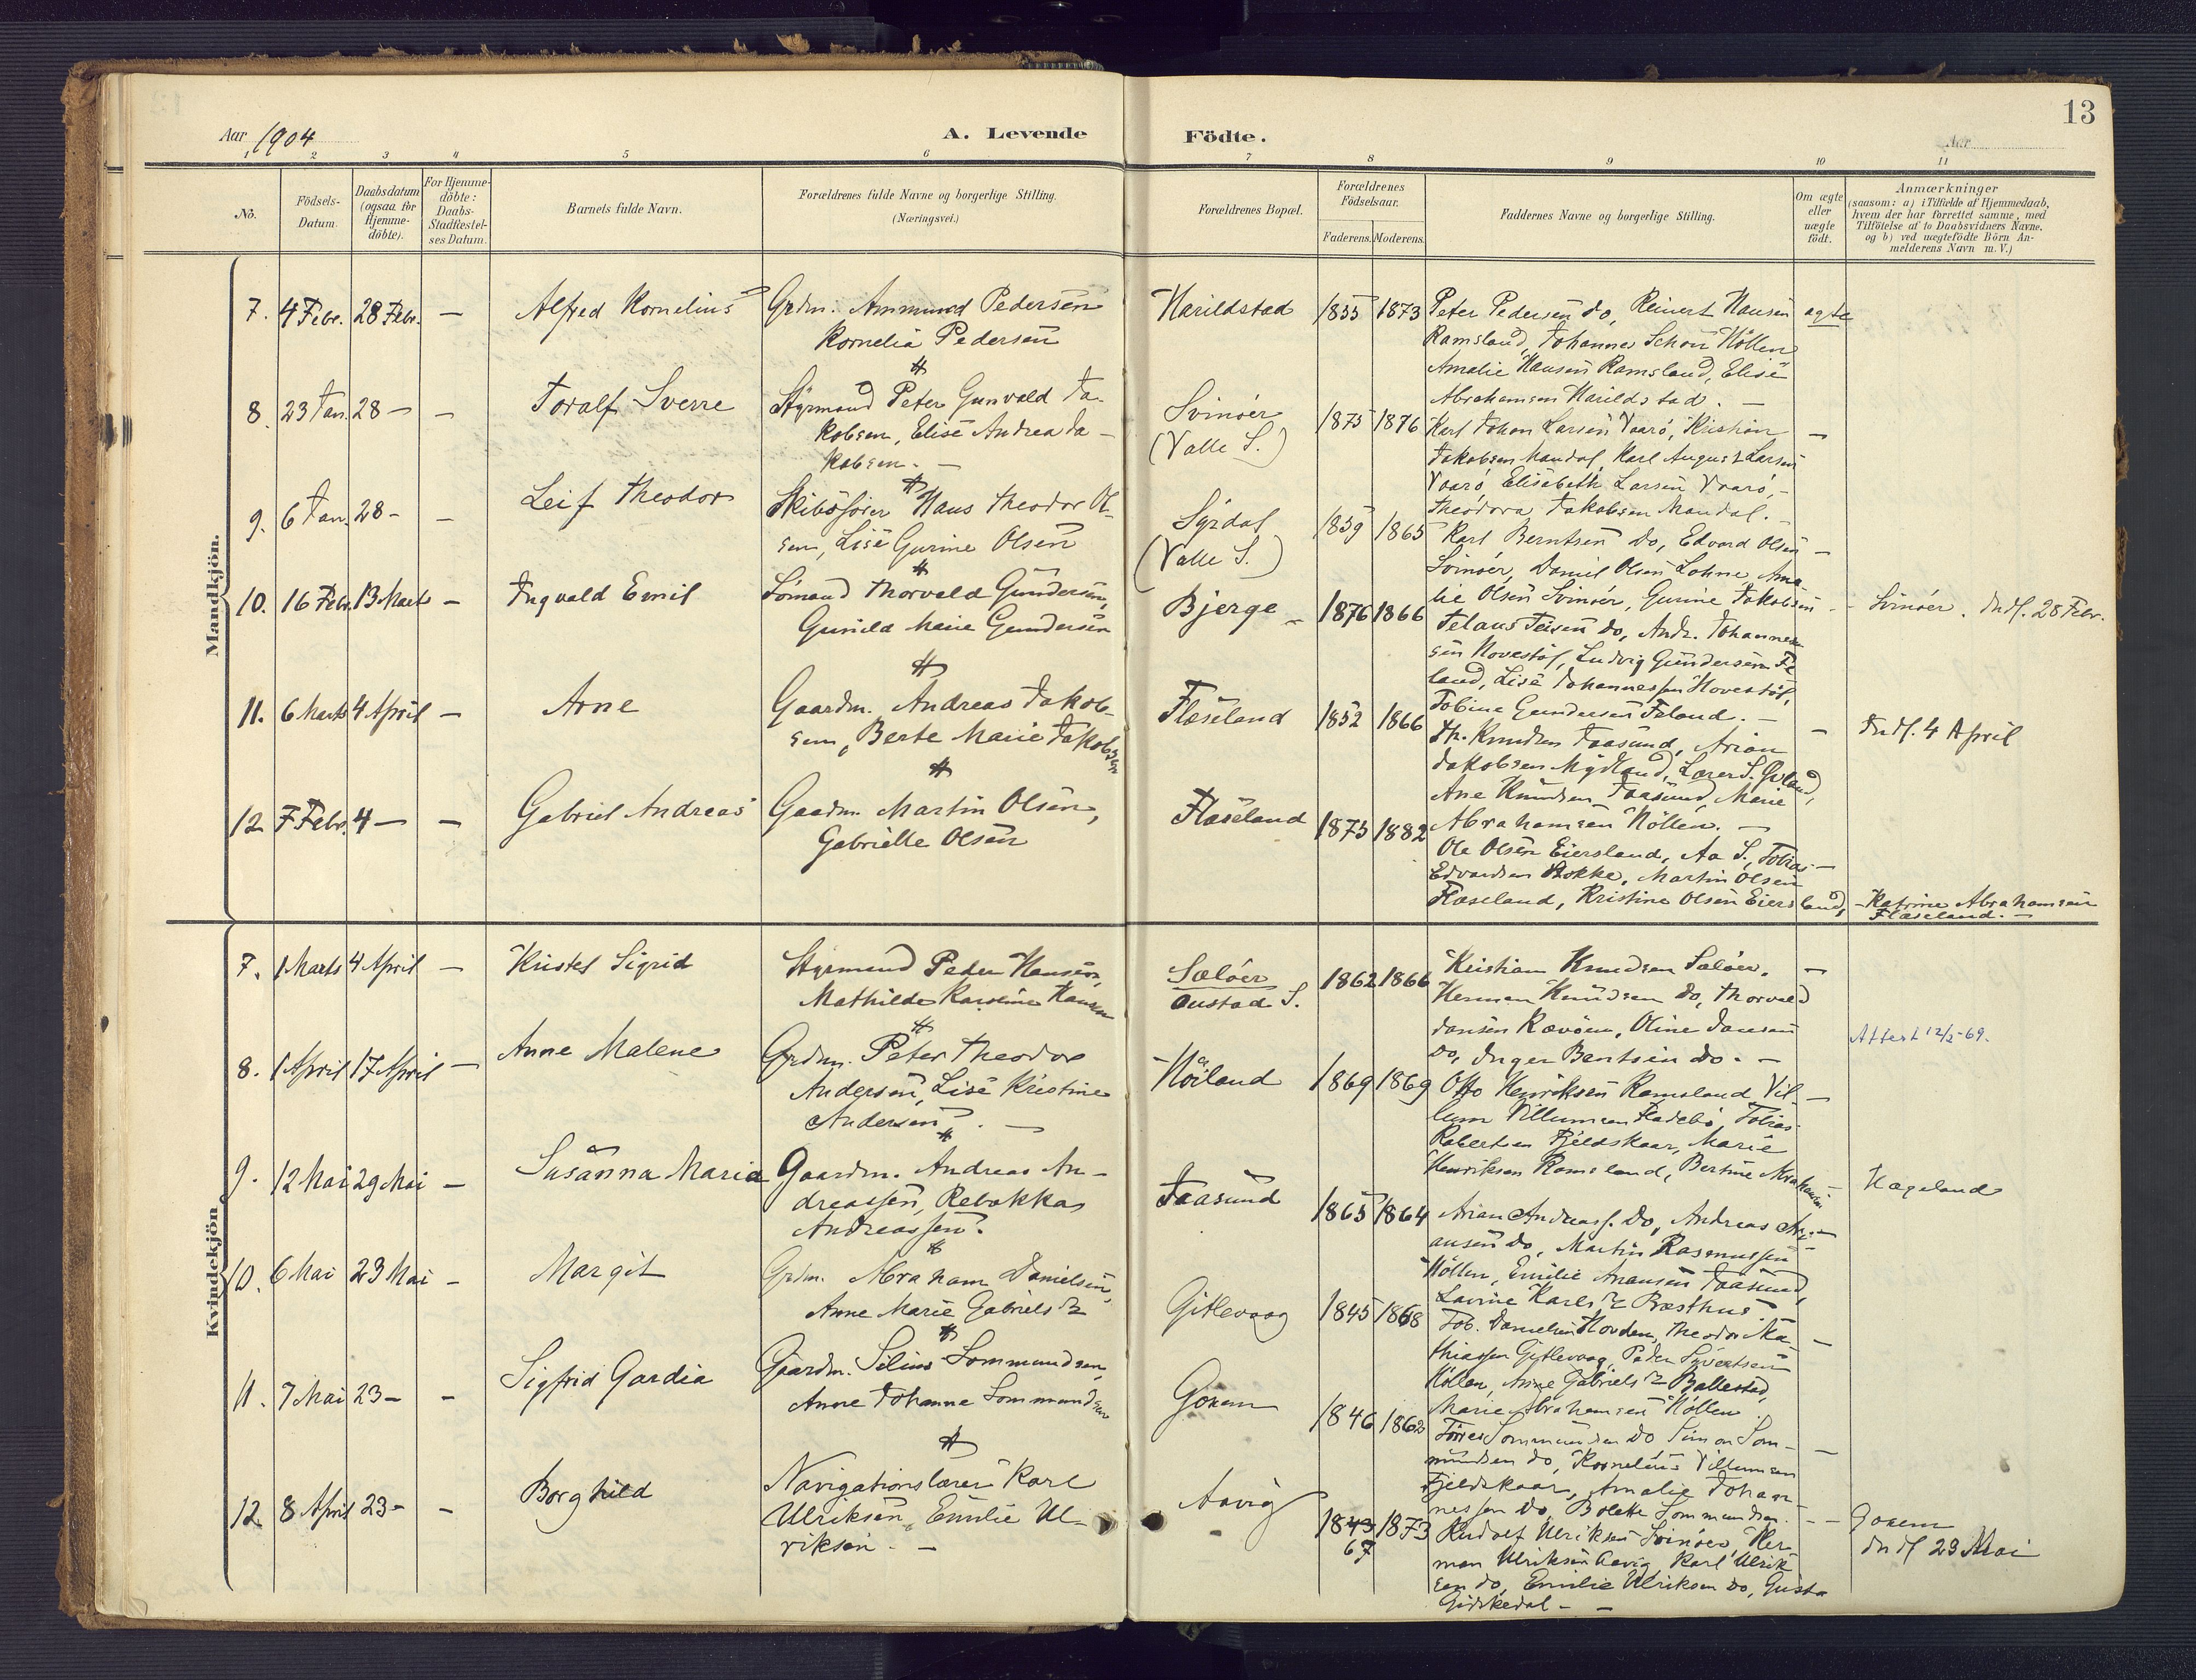 13
Aar 1904
A. Levende Födte.
1 2 3 4 5 6 7 8 9 10 11
No.
Födsels-
Datum.
Daabsdatum
(ogsaa for
Hjemme-
döbte).
For Hjemme-
döbte:
Daabs-
Stadfæstel-
ses Datum.
Barnets fulde Navn.
Forældrenes fulde Navne og borgerlige Stilling.
(Næringsvei.)
Forældrenes Bopæl.
Forældrenes
Födselsaar.
Faderens. Moderens.
Faddernes Navne og borgerlige Stilling.
Om ægte
eller
uægte
födt.
Anmærkninger
(saasom: a) i Tilfælde af Hjemmedaab,
hvem der har forrettet samme, med
Tilföielse af to Daabsvidners Navne,
og b) ved uægtefödte Börn An-
melderens Navn m. V.)
Mandkjön.
7. 4 Febr. 28 Febr. — Alfred Kornelius
Grdm. Ammund Pedersen
Kornelia Pedersen
Harildstad 1855 1873
Peter Pedersen do, Reinert Hansen
Ramsland, Johannes Schou Höllen
Amalie Hansen Ramsland, Elise
Abrahamsen Harildstad. —
ægte
8. 23 Jan. 28 — — Toralf Sverre
Styrmand Peter Gunvald Ja-
kobsen, Elise Andrea Ja-
kobsen. —
Svinöer
(Valle S.)
1875 1876
Karl Johan Larsen Vaarö, Kristian
Jakobsen Mandal, Karl August Larsen
Vaarö, Elisabeth Larsen Vaarö, —
Theodora Jakobsen Mandal. —
—
9. 6 Jan. 28 — — Leif Theodor
Skibsförer Hans Theodor Ol-
sen, Lise Gurine Olsen
Syrdal
(Valle S.)
1859 1865
Karl Berntsen do, Edvard Olsen
Svinöer, Daniel Olsen Lohne, Ama-
lie Olsen Svinöer, Gurine Jakobsen
— Svinöer. Indl. 28 Febr.
10. 16 Febr. 13 Marts — Ingvald Emil
Sömand Thorvald Gundersen,
Gunild Marie Gundersen
Bjerge — 1876 1866
do, Andr. Johannes-
sen Hovestöl, Ludvig Gundersen Fe-
land, Lise Johannessen Hovestöl,
Tobine Gundersen Feland. —
11. 6 Marts 4 April — Arne
Gaardm. Andreas Jakob-
sen, Berte Marie Jakobsen
Flaseland 1852 1866
Th. Knudsen Taasund, Arian
Jakobsen Mydland, Lærer S. Öyland,
Ane Knudsen Taasund, Marie
Abrahamsen Höllen. —
— Indl. 4 April
12. 7 Febr. 4 — — Gabriel Andreas
Gaardm. Martin Olsen,
Gabrielle Olsen
Flaseland 1873 1882
Ole Olsen Eiersland, Aa S., Tobias
Edvardsen Stokke, Martin Olsen
Flaseland, Kristine Olsen Eiersland,
— Katrine Abrahamsen
Flaseland. —
Kvindekjön.
7. 1 Marts 4 April — Kristel Sigrid
Styrmand Peder Hansen,
Mathilde Karoline Hansen
Sælöer
Oustad S.
1862 1866
Kristian Knudsen Sælöer,
Herman Knudsen do, Thorvald
Jansen Rævöen, Oline Jansen
do, Inger Bentsen do. —
—
8. 1 April 17 April — Anne Malene
Grdm. Peter Theodor
Andersen, Lise Kristine
Andersen. —
Höiland 1869 1869
Otto Henriksen Ramsland, Vil-
lum Villumsen Fladebö, Tobias
Robertsen Fjeldskaar, Marie
Henriksen Ramsland, Bertine Abrahamsen
— Hageland
Attest 12/2-69.
9. 12 Mai 29 Mai — Susanna Maria
Gaardm. Andreas An-
dreassen, Rebekka
Andreassen.
Taasund 1865 1864
Arian Andreass. do, Andreas Ari-
ansen do, Martin Rasmussen
Höllen, Emilie Ariansen Taasund,
Lavine Karls Dr Præsthus.
—
10. 6 Mai 23 Mai — Margit
Grdm. Abraham Danielsen,
Anne Marie Gabriels Dr
Gitlevaag 1845 1868
Tob. Danielsen Horden, Theodor Ma-
thiassen Gitlevaag, Peder Syvertsen
Höllen, Anne Gabriels Dr Ballestad,
Marie Abrahamsen Höllen.
—
11. 7 Mai 23 — — Sigfrid Gardia
Gaardm. Silius Sommundsen,
Anne Johanne Sommundsen
Goxem 1846 1862
Törres Sommundsen do, Simon Som-
mundsen do, Kornelius Villumsen
Fjeldskaar, Amalie Johan-
nessen do, Bolette Sommundsen. —
— Goxem
12. 8 April 23 — — Borghild
Navigationslærer Karl
Ulriksen, Emilie Ul-
riksen. —
Aavig 1843 1873
67
Rudolf Ulriksen Svinöer, Her-
man Ulriksen Aavig, Karl Ulrik-
sen do, Emilie Ulriksen do, Gusta
Gidskedal — —
Indl 23 Mai